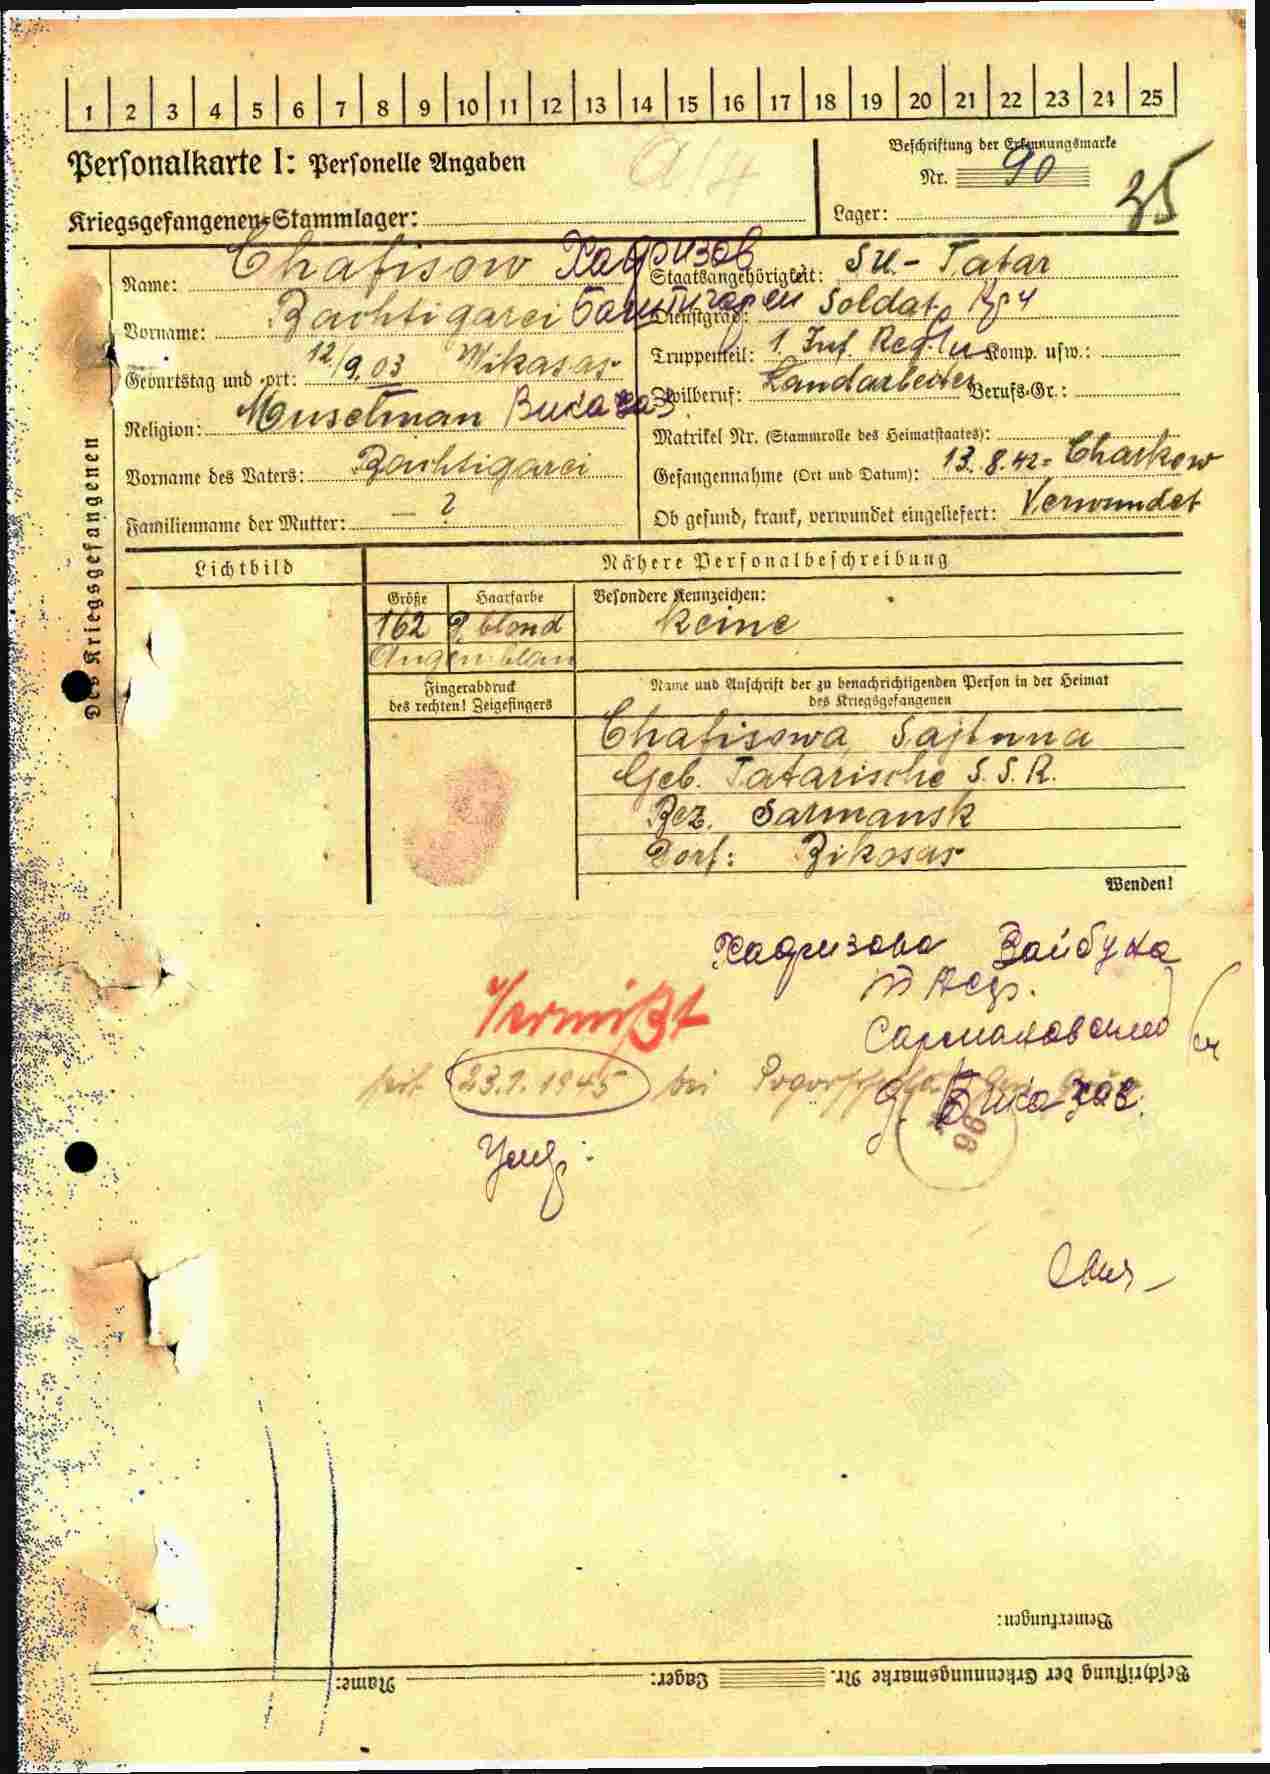 1 2 3 4 5 6 7 8 9 10 11 12 13 14 15 16 17 18 19 20 21 22 23 24 25
Personalkarte I: Personelle Angaben
Beschriftung der Erkennungsmarke
Nr. 90
Kriegsgefangenen-Stammlager:
Lager: 25
Des Kriegsgefangenen
Name: Chafisow Хафизов
Vorname: Bachtigarei
Geburtstag und -ort: 12/9.03 Mikasas
Religion: Muselman
Vorname des Vaters: Bachtigarei
Familienname der Mutter: — ?
Staatsangehörigkeit: SU.- Tatar
Dienstgrad: Soldat
Truppenteil: 1. Inf. Regt. Komp. usw.:
Zivilberuf: Landarbeiter Berufs-Gr.:
Matrikel Nr. (Stammrolle des Heimatstaates):
Gefangennahme (Ort und Datum): 13.8.42 Charkow
Ob gesund, krank, verwundet eingeliefert: Verwundet
Lichtbild
Nähere Personalbeschreibung
Größe Haarfarbe Besondere Kennzeichen:
162 d. blond keine
Augen blau
Fingerabdruck
des rechten! Zeigefingers
Name und Anschrift der zu benachrichtigenden Person in der Heimat
des Kriegsgefangenen
Chafisowa
Geb. Tatarische S.S.R.
Bez. Sarmansk
Dorf: Bikasas
Wenden!
Хафизова
Vermißt
seit 23.1.1945 bei
д. Биказас.
96
Bemerkungen:
Beschriftung der Erkennungsmarke Nr. Lager: Name: